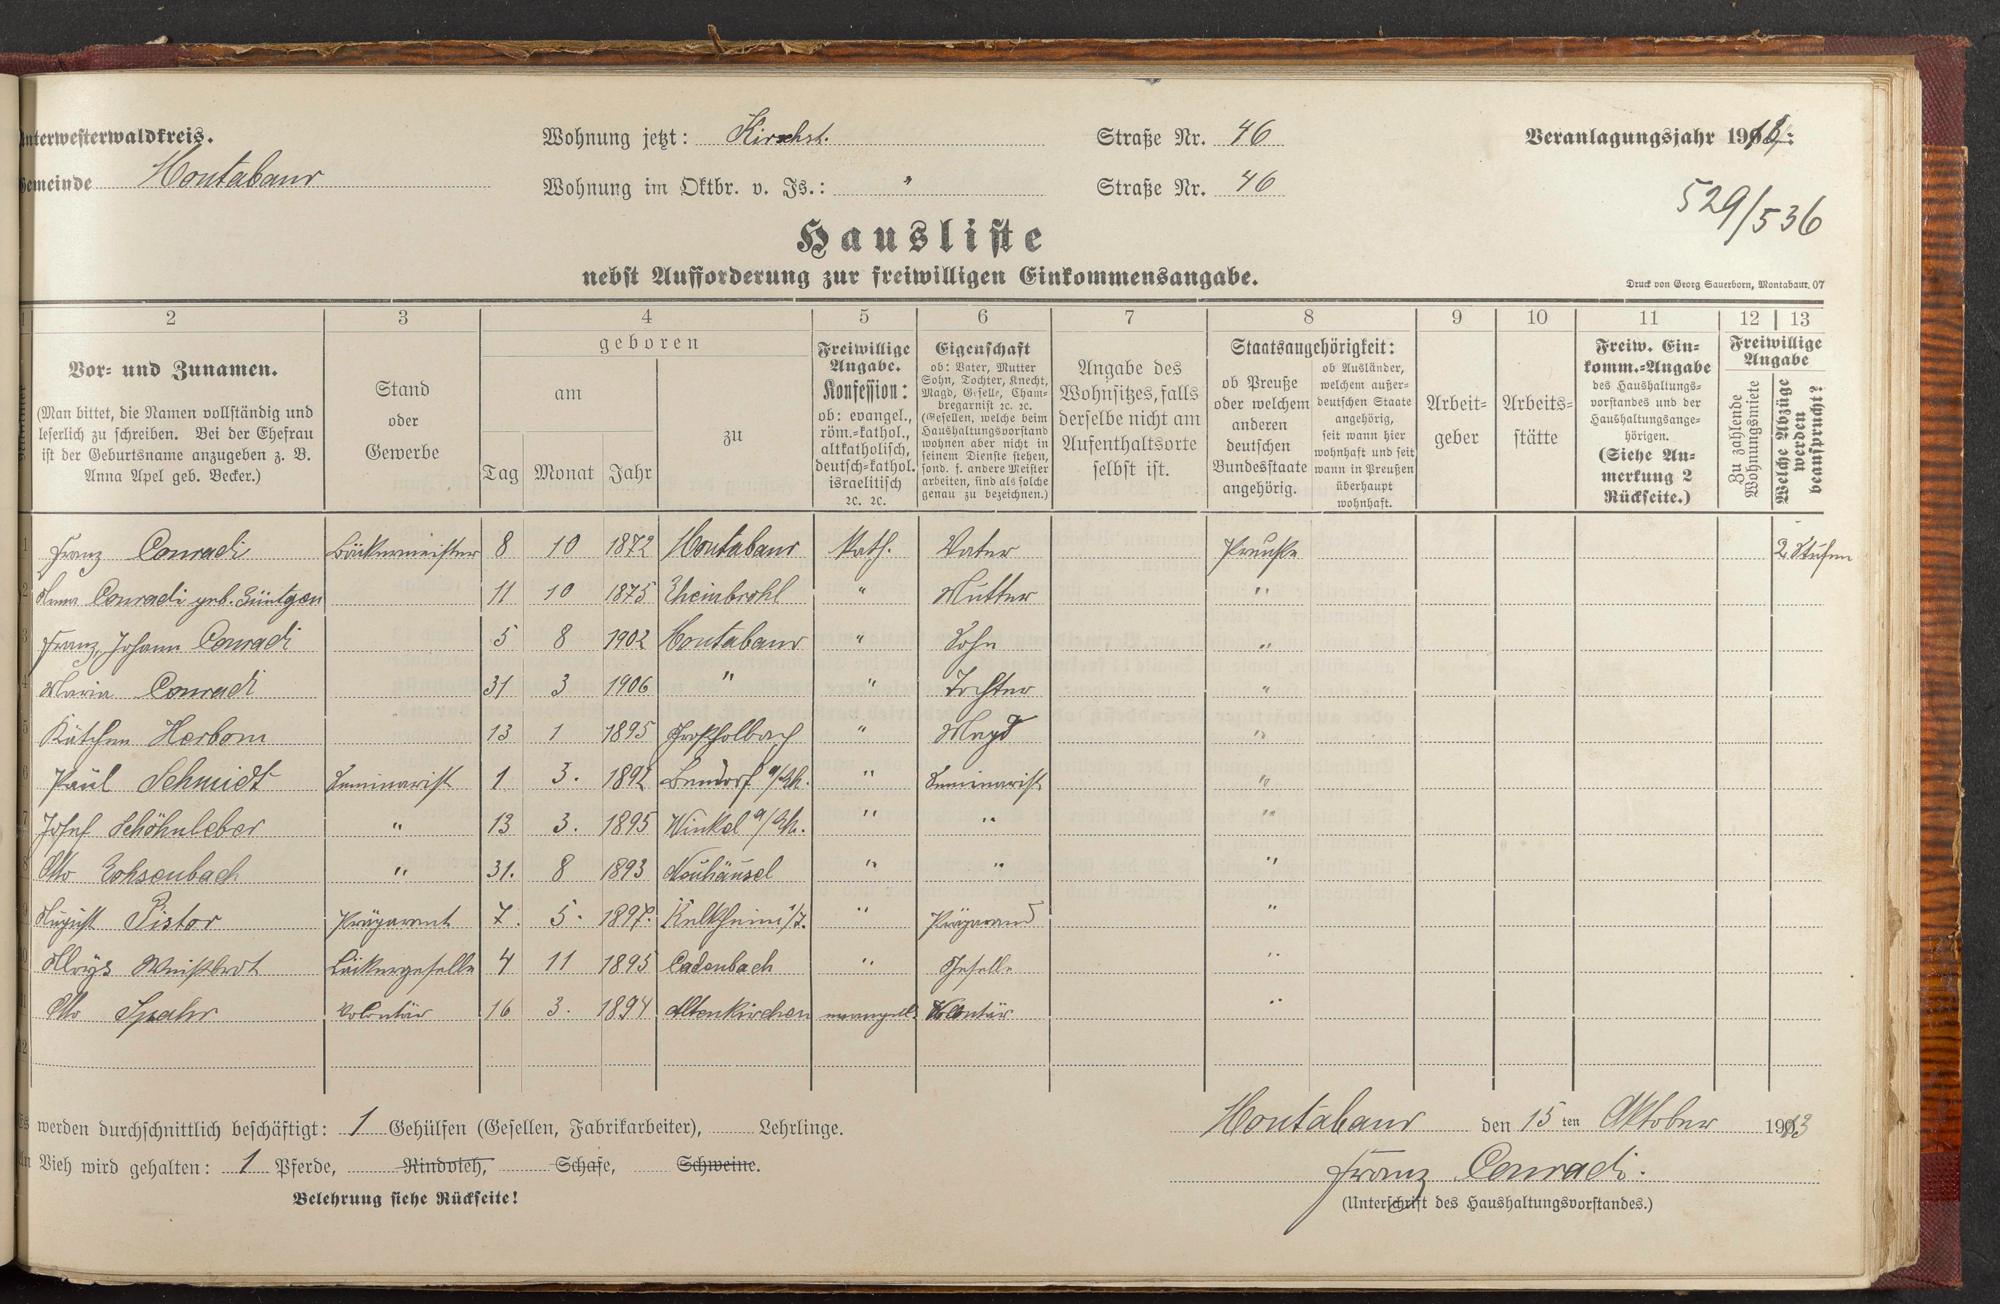 Unterwesterwaldkreis.
Gemeinde Montabaur
Wohnung jetzt: Kirchst. Straße Nr. 46
Wohnung im Oktbr. v. Js.: " Straße Nr. 46
Veranlagungsjahr 19
529/536
Hausliste
nebst Aufforderung zur freiwilligen Einkommensangabe.
Druck von Georg Sauerborn, Montabaur. 07
1 2 3 4 5 6 7 8 9 10 11 12 13
Vor- und Zunamen.
(Man bittet, die Namen vollständig und
leserlich zu schreiben. Bei der Ehefrau
ist der Geburtsname anzugeben z. B.
Anna Apel geb. Becker.)
Stand
oder
Gewerbe
geboren
am
Tag Monat Jahr
zu
Freiwillige
Angabe.
Konfession:
ob: evangel.,
röm.-kathol.,
altkatholisch,
deutsch-kathol.
israelitisch
ꝛc. ꝛc.
Eigenschaft
ob: Vater, Mutter
Sohn, Tochter, Knecht,
Magd, Geselle, Cham-
bregarnist ꝛc. ꝛc.
(Gesellen, welche beim
Haushaltungsvorstand
wohnen aber nicht in
seinem Dienste stehen,
sond. f. andere Meister
arbeiten, sind als solche
genau zu bezeichnen.)
Angabe des
Wohnsitzes, falls
derselbe nicht am
Aufenthaltsorte
selbst ist.
Staatsangehörigkeit:
ob Preuße
oder welchem
anderen
deutschen
Bundesstaate
angehörig.
ob Ausländer,
welchem außer-
deutschen Staate
angehörig,
seit wann hier
wohnhaft und seit
wann in Preußen
überhaupt
wohnhaft.
Arbeit-
geber
Arbeits-
stätte
Freiw. Ein-
komm.-Angabe
des Haushaltungs-
vorstandes und der
Haushaltungsange-
hörigen.
(Siehe An-
merkung 2
Rückseite.)
Freiwillige
Angabe
Zu zahlende
Wohnungsmiete
Welche Abzüge
werden
beansprucht?
1 Franz Conradi Bäckermeister 8 10 1872 Montabaur Kath. Vater Preuße 2 Stufen
2 Anna Conradi geb. 11 10 1875 Rheinbrohl " Mutter "
3 Franz Johann Conradi 5 8 1902 Montabaur " Sohn "
4 Maria Conradi 31 3 1906 " " Tochter "
5 Kätchen Herborn 13 1 1895 Großholbach " Magd "
6 Paul Schmidt Seminarist 1 3. 1892 Bendorf a/Rh. " Seminarist "
7 Josef Schöhnleber " 13 3. 1895 Winkel a/Rh. " " "
8 Otto " 31. 8 1893 Neuhäusel " " "
9 August Pistor Präparant 7. 5. 1897. " Präparand "
10 Aloys Weißbrot Bäckergeselle 4 11 1895 Cadenbach " Geselle "
11 Otto Spahr Volontär 16 3. 1894 Altenkirchen evangell. Volontär "
12
Es werden durchschnittlich beschäftigt: 1 Gehülfen (Gesellen, Fabrikarbeiter), Lehrlinge.
An Vieh wird gehalten: 1 Pferde, Rindvieh, Schafe, Schweine.
Belehrung siehe Rückseite!
Montabaur den 15 ten Oktober 1913
Franz Conradi.
(Unterschrift des Haushaltungsvorstandes.)